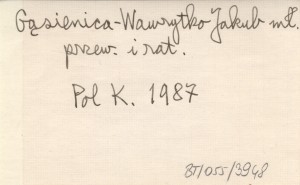 Gąsienica-Wawrytko Jakub mł.
przew. i rat.
Pol K. 1987
BT/055/3948